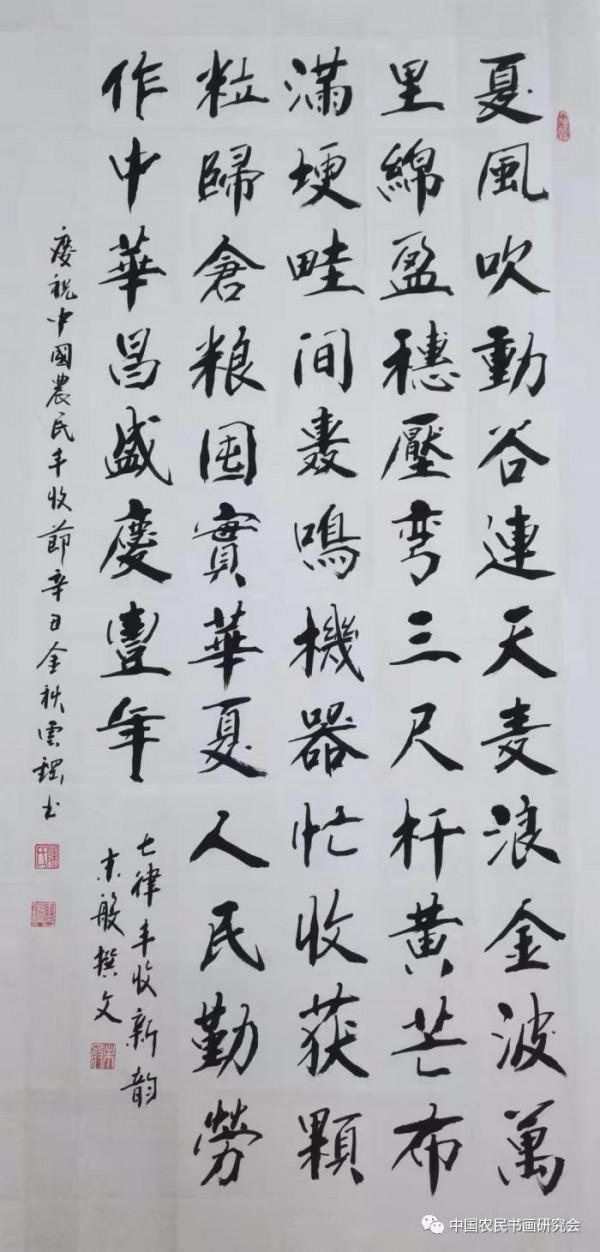 夏風吹動谷連天麦浪金波萬
里綿盈穗壓弯三尺杆黄芒布
滿埂畦间轰鳴機器忙收获顆
粒歸倉粮囤實華夏人民勤勞
作中華昌盛慶豐年
七律丰收新韵
木般撰文
慶祝中國農民丰收節辛丑金秋雲程书
中国农民书画研究会